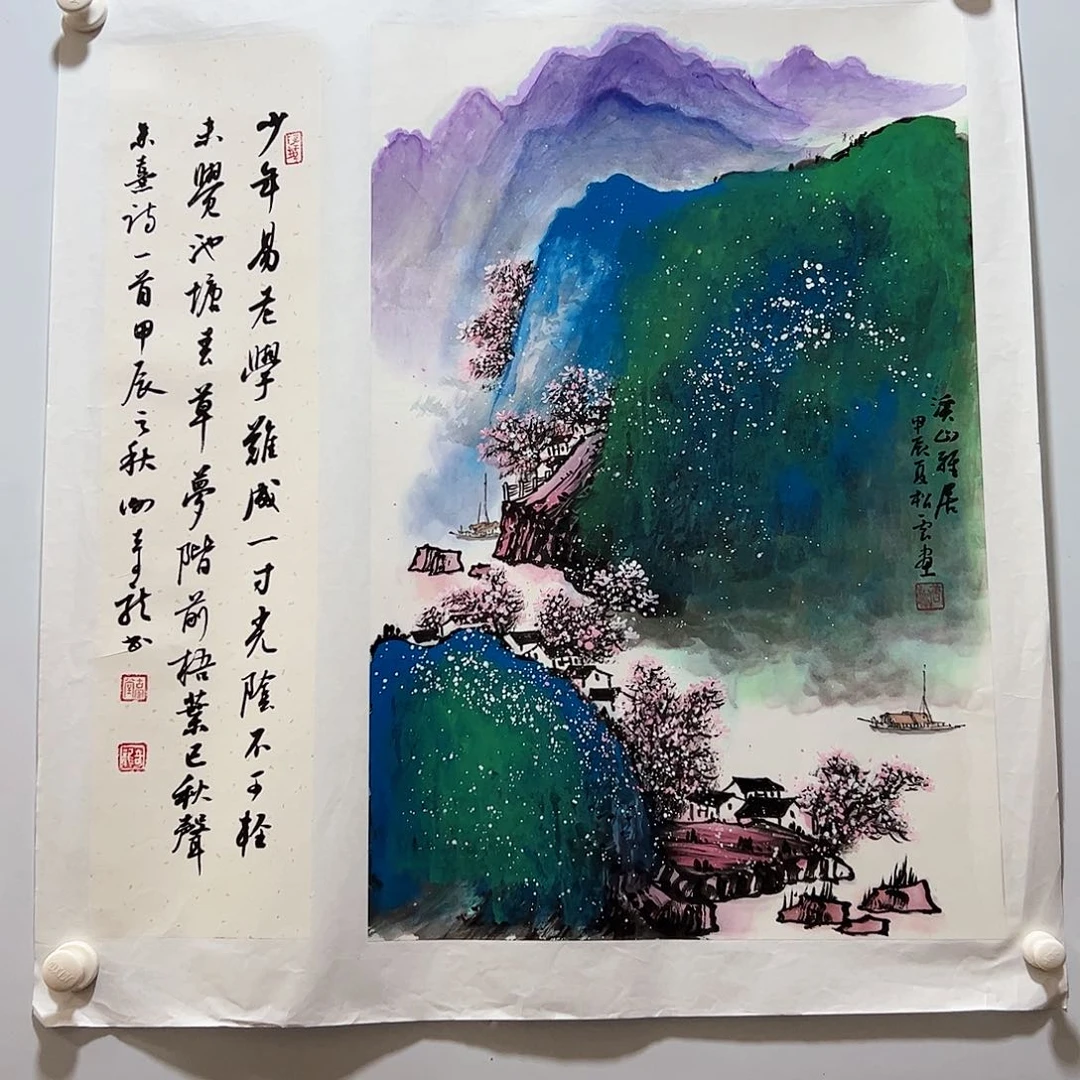 少年易老學難成一寸光陰不可輕
未覺池塘春草夢階前梧葉已秋聲
朱熹詩一首甲辰之秋
溪山雅居
甲辰夏松雲畫